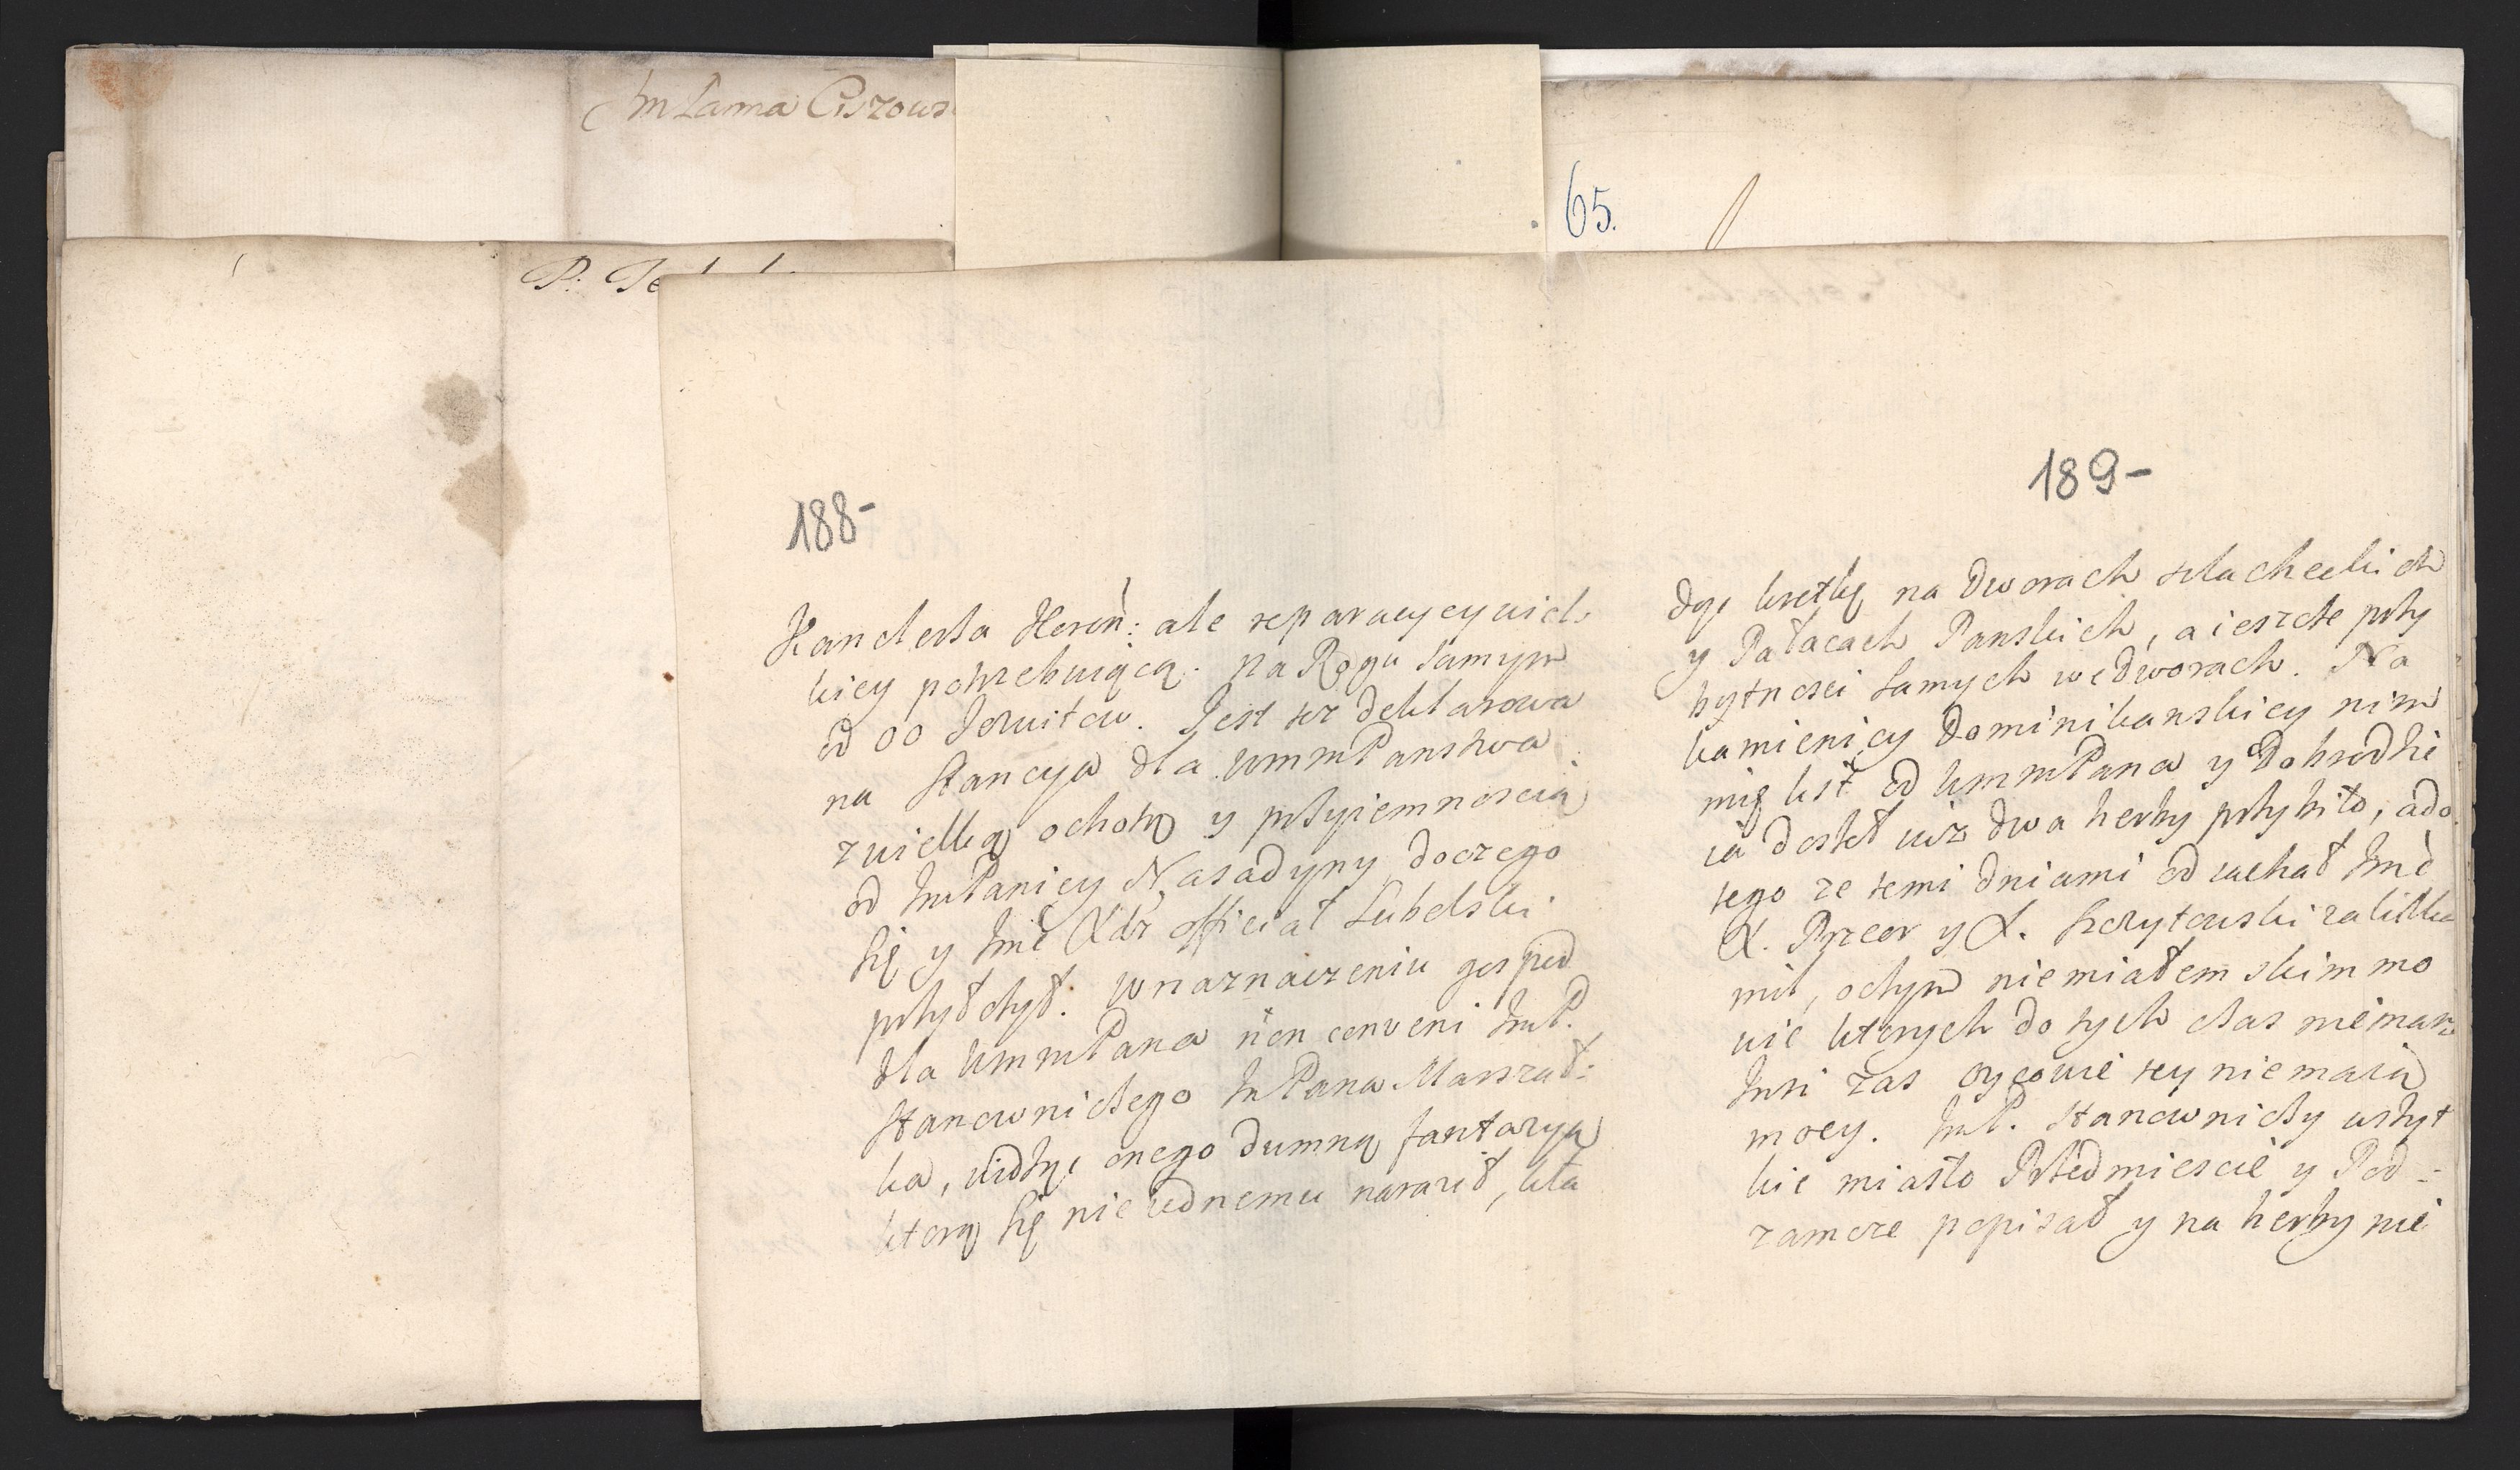 JmPanna Ciszows
P: Te
65.
188-
Kanclerza Koron: ale reparacyey wiel-
kiey potrzebuiącą. na Rogu samym
od OO Jezuitow. Jest tez deklarowa
na Stancya dla WmmPanstwa
z wielką ochotą y przyiemnoscią
od JmPaniey Nasadyny, do czego
się y Jmć Xdz official Lubelski
przyłożył. W naznaczeniu gospod
dla WmmPana non conveni JmP.
Stanowniczego JmPana Marszał:
ka, widząc onego dumną fantazyą
ktorą się nie iednemu naraził, kła
189-
dąc kretkę na Dworach szlacheckich
y Pałacach Panskich, a ieszcze przy
bytnosci samych we dworach. Na
kamienicy Dominikanskiey nim
mię list od WmmPana y Dobrodzie
ia doszeł iuz dwa herby przybito, a do
tego ze temi dniami odiachał Jmć
X. Przeor y X. Korytowski za kilka
mil, o czym nie miałem z kim mo
wic ktorych do tych czas nie masz
Insi zas oycowie tey nie maią
mocy. JmP. Stanowniczy wszyt
kie miasto Przedmiescie y Pod-
zamcze popisał y na herby nie